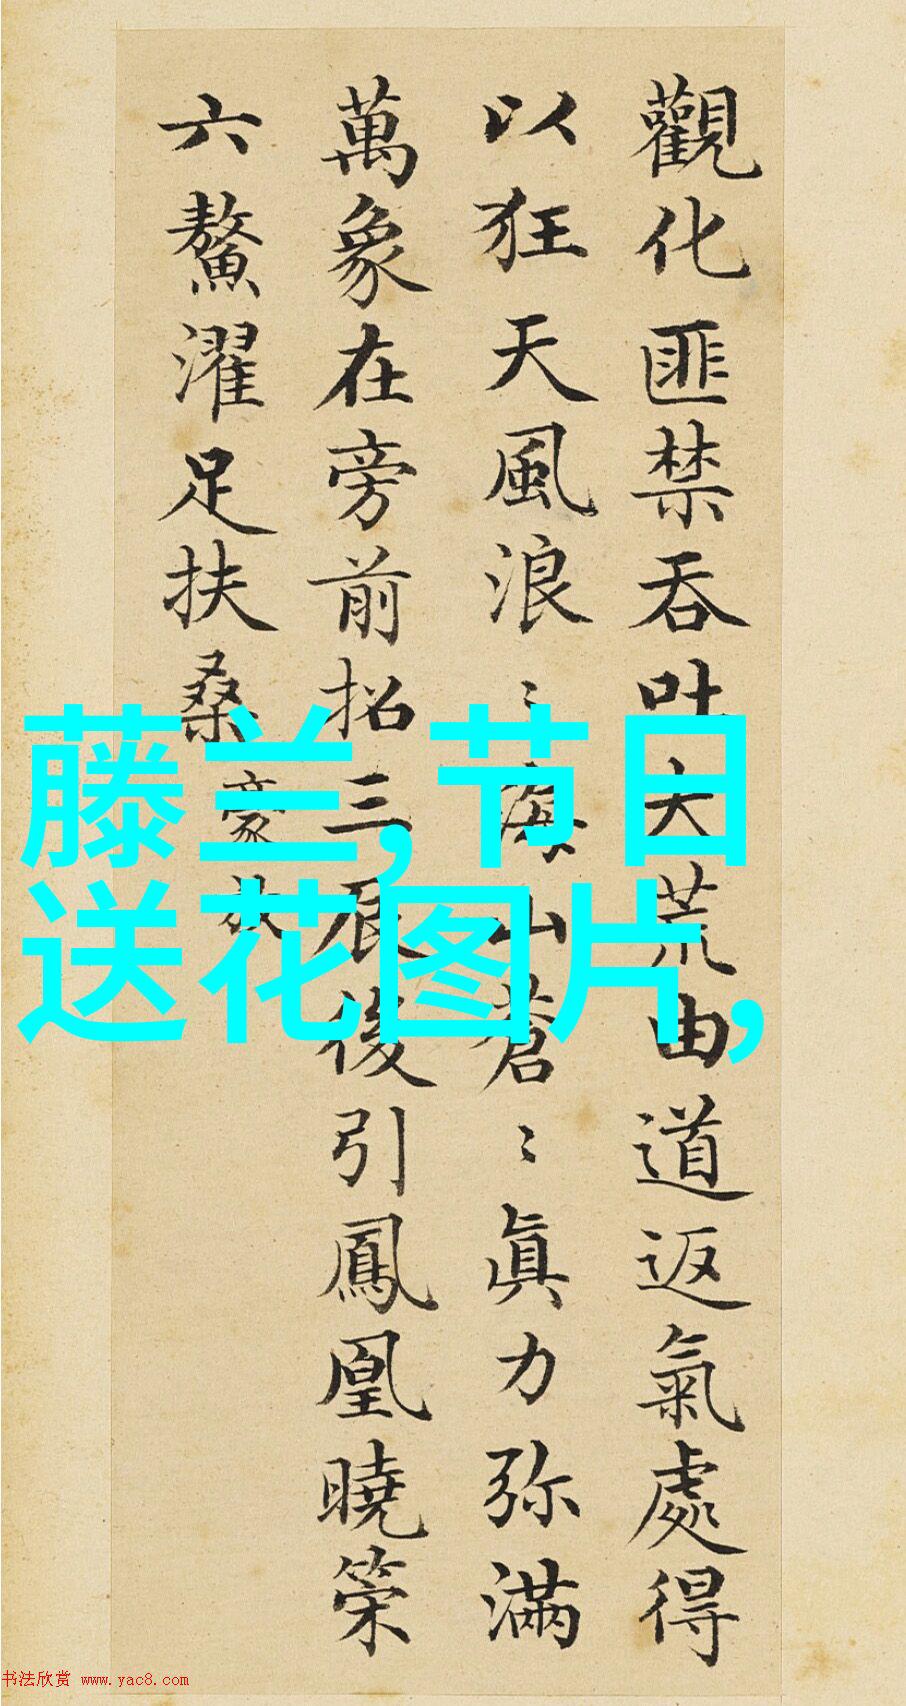 觀化匪禁吞吐大荒由道返氣處得
以狂天風浪〻海山蒼〻真力弥滿
萬象在旁前招三辰後引鳳凰曉策
六鰲濯足扶桑
豪放
藤兰,节日
送花图片,
书法欣赏 www.yac8.com